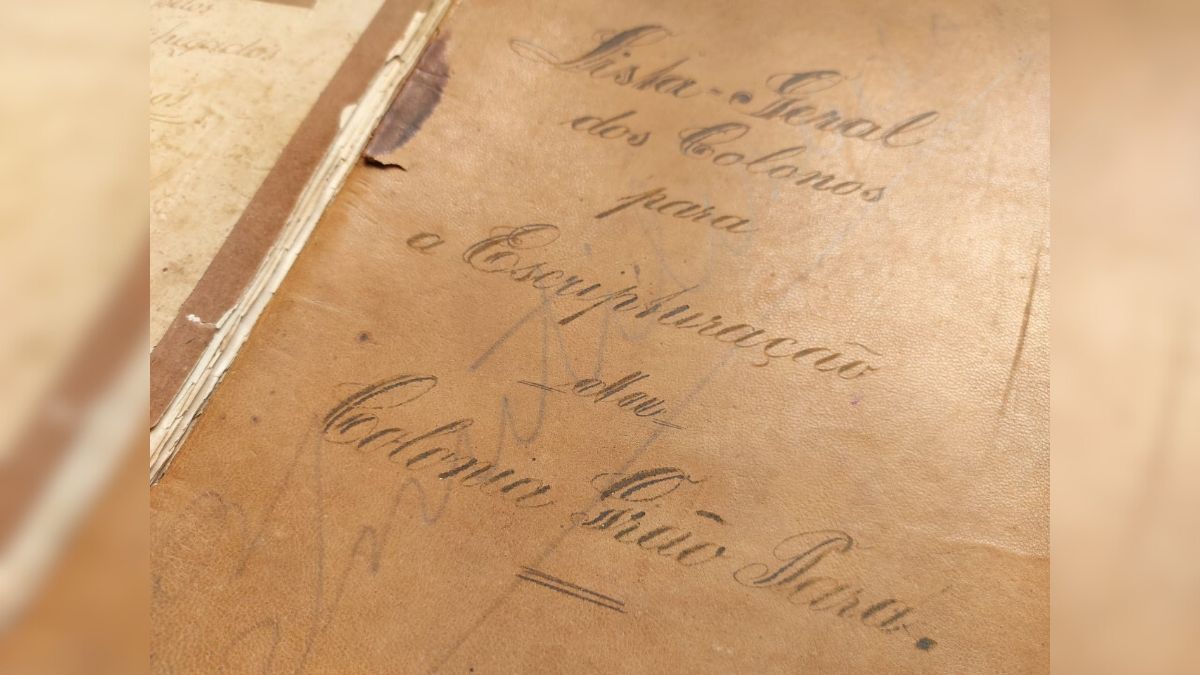 Lista-Geral
dos Colonos
para
a Escripturação
da
Colonia Grão Pará.